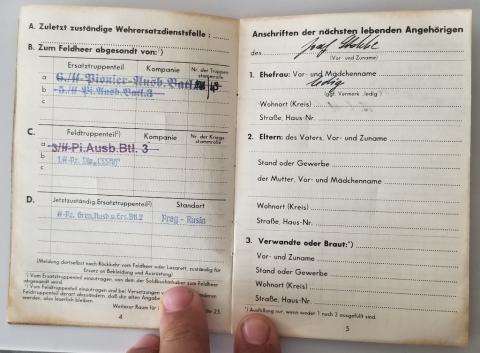 A. Zuletzt zuständige Wehrersatzdienststelle :
B. Zum Feldheer abgesandt von:¹)
Ersatztruppenteil Kompanie Nr. der Truppen-
stammrolle
a 6./ϟϟ-Pionier-Ausb.Batl.
b
c
C. Feldtruppenteil²) Kompanie Nr. der Kriegs-
stammrolle
a 3/ϟϟ-Pi.Ausb.Btl. 3
b
c
D. Jetztzuständig.Ersatztruppenteil²) Standort
ϟϟ-Pz.Gren.Ausb.u.Ers.Btl.2 Prag - Rusin
(Meldung dortselbst nach Rückkehr vom Feldheer oder Lazarett, zuständig für
Ersatz an Bekleidung und Ausrüstung)
¹) Vom Ersatztruppenteil einzutragen, von dem der Soldbuchinhaber zum Feldheer
abgesandt wird.
²) Vom Feldtruppenteil einzutragen und bei Versetzungen
Feldtruppenteil derart abzuändern, daß die alten Angaben
werden, also leserlich bleiben.
Weiterer Raum für 23.
4
Anschriften der nächsten lebenden Angehörigen
des
(Vor- und Zuname)
1. Ehefrau: Vor- und Mädchenname
ledig
(ggf. Vermerk „ledig")
Wohnort (Kreis)
Straße, Haus-Nr.
2. Eltern: des Vaters, Vor- und Zuname
Stand oder Gewerbe
der Mutter, Vor- und Mädchenname
Wohnort (Kreis)
Straße, Haus-Nr.
3. Verwandte oder Braut:*)
Vor- und Zuname
Stand oder Gewerbe
Wohnort (Kreis)
Straße, Haus-Nr.
*) Ausfüllung nur, wenn weder 1 noch 2 ausgefüllt sind.
5